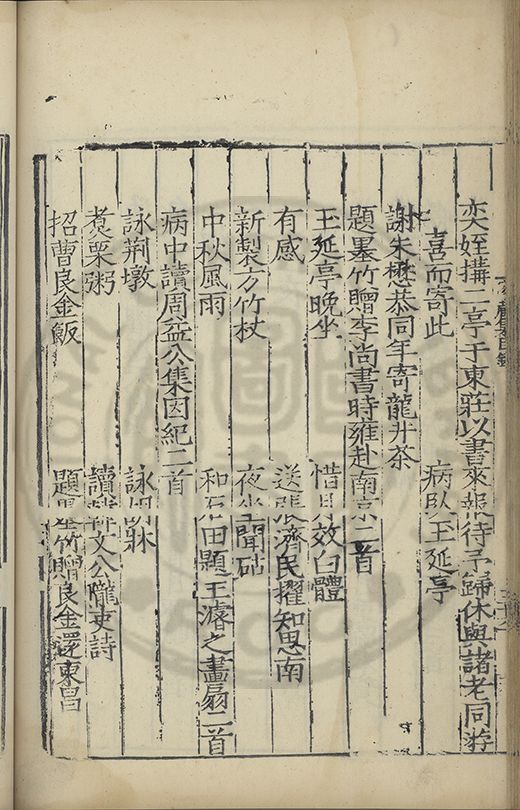 奕姪搆一亭于東莊以書來報待予歸休與諸老同游
喜而寄此　病臥玉延亭
謝朱懋恭同年寄龍井茶
題墨竹贈李尚書時雍赴南京二首
玉延亭晚坐　惜月效白體
有感　送張濟民擢知思南
新製方竹杖　夜坐聞砧
中秋風雨　和石田題王濬之畫扇二首
病中讀周益公集因紀二首
詠荊墩　詠牀
煑栗粥　讀韓文公隴吏詩
招曹良金飯　題墨竹贈良金還東昌